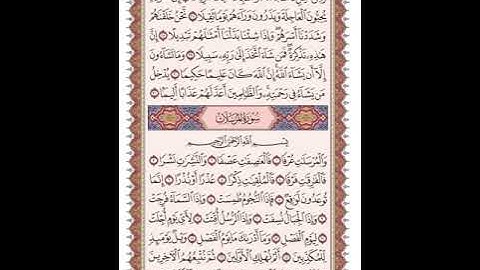 يُحِبُّونَ ٱلْعَاجِلَةَ وَيَذَرُونَ وَرَآءَهُمْ يَوْمًا ثَقِيلًا ۝ نَّحْنُ خَلَقْنَٰهُمْ
وَشَدَدْنَآ أَسْرَهُمْ وَإِذَا شِئْنَا بَدَّلْنَآ أَمْثَٰلَهُمْ تَبْدِيلًا ۝ إِنَّ
هَٰذِهِۦ تَذْكِرَةٌ فَمَن شَآءَ ٱتَّخَذَ إِلَىٰ رَبِّهِۦ سَبِيلًا ۝ وَمَا تَشَآءُونَ
إِلَّآ أَن يَشَآءَ ٱللَّهُ إِنَّ ٱللَّهَ كَانَ عَلِيمًا حَكِيمًا ۝ يُدْخِلُ
مَن يَشَآءُ فِى رَحْمَتِهِۦ وَٱلظَّٰلِمِينَ أَعَدَّ لَهُمْ عَذَابًا أَلِيمًۢا ۝
سُورَةُ المُرْسَلَاتِ
بِسْمِ ٱللَّهِ ٱلرَّحْمَٰنِ ٱلرَّحِيمِ
وَٱلْمُرْسَلَٰتِ عُرْفًا ۝ فَٱلْعَٰصِفَٰتِ عَصْفًا ۝ وَٱلنَّٰشِرَٰتِ نَشْرًا ۝
فَٱلْفَٰرِقَٰتِ فَرْقًا ۝ فَٱلْمُلْقِيَٰتِ ذِكْرًا ۝ عُذْرًا أَوْ نُذْرًا ۝ إِنَّمَا
تُوعَدُونَ لَوَٰقِعٌ ۝ فَإِذَا ٱلنُّجُومُ طُمِسَتْ ۝ وَإِذَا ٱلسَّمَآءُ فُرِجَتْ
۝ وَإِذَا ٱلْجِبَالُ نُسِفَتْ ۝ وَإِذَا ٱلرُّسُلُ أُقِّتَتْ ۝ لِأَىِّ يَوْمٍ أُجِّلَتْ
۝ لِيَوْمِ ٱلْفَصْلِ ۝ وَمَآ أَدْرَىٰكَ مَا يَوْمُ ٱلْفَصْلِ ۝ وَيْلٌ يَوْمَئِذٍ
لِّلْمُكَذِّبِينَ ۝ أَلَمْ نُهْلِكِ ٱلْأَوَّلِينَ ۝ ثُمَّ نُتْبِعُهُمُ ٱلْءَاخِرِينَ